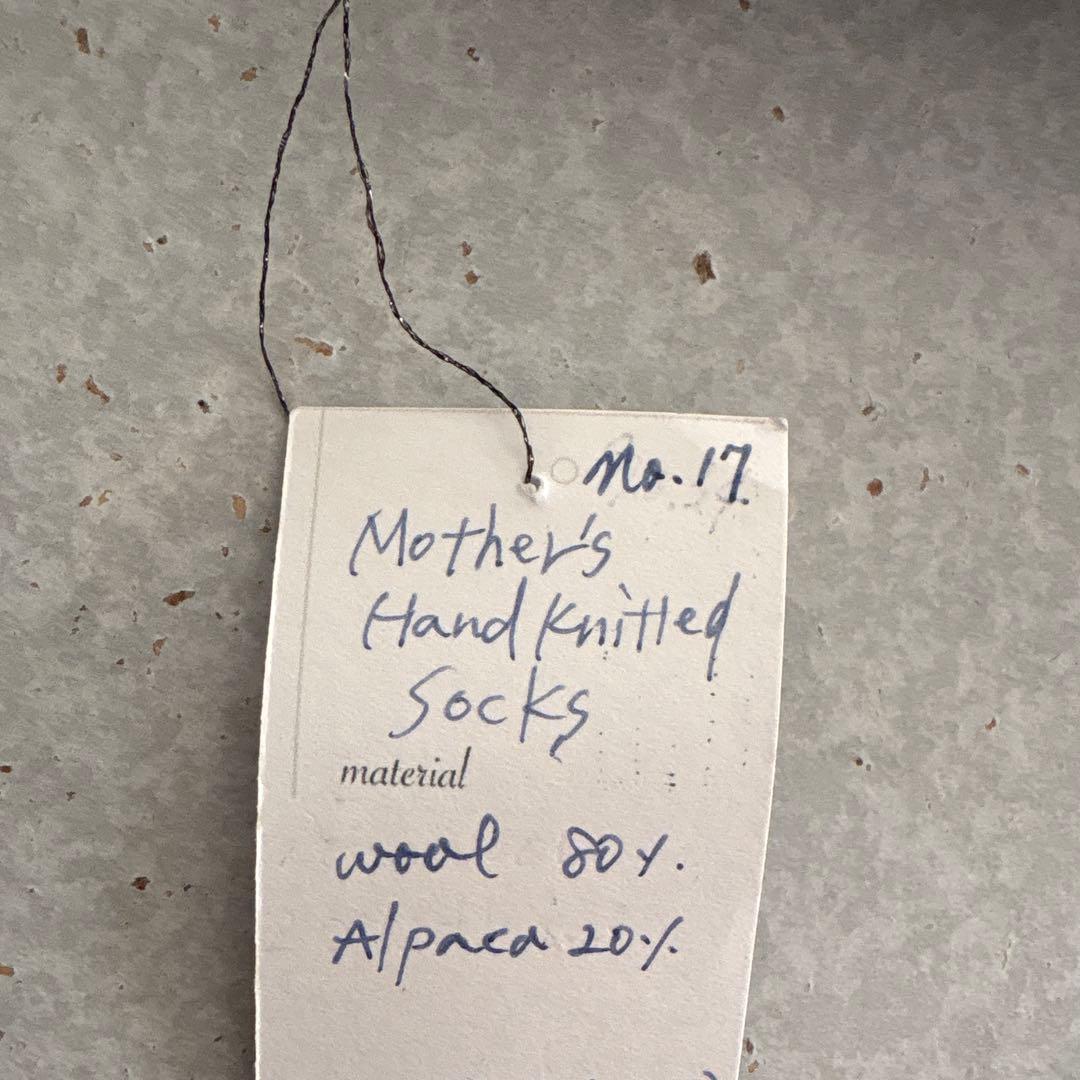 No.17
Mother's
Hand Knitted
Socks
material
wool 80%.
Alpaca 20%